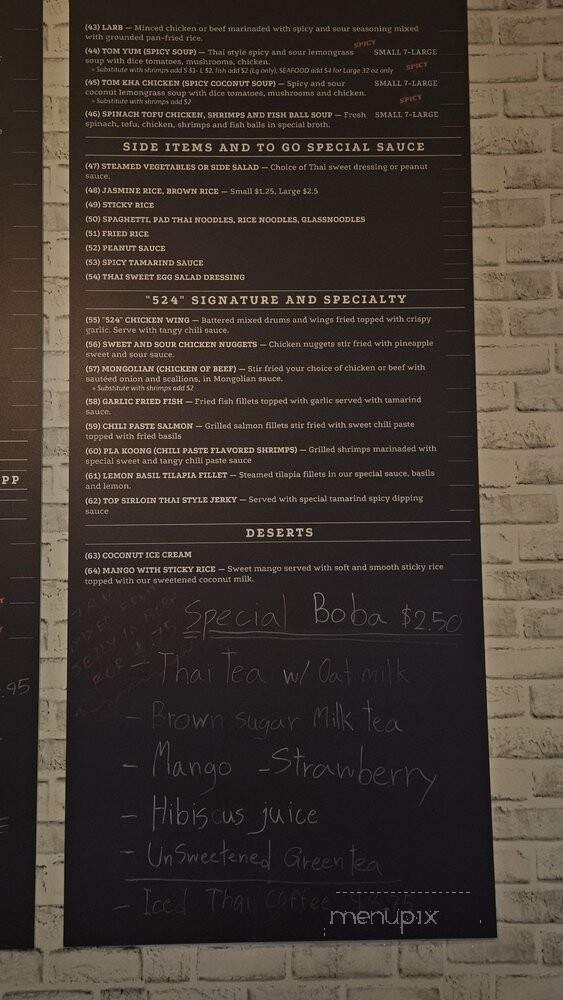 (43) LARB — Minced chicken or beef marinaded with spicy and sour seasoning mixed
with grounded pan-fried rice.
SPICY
(44) TOM YUM (SPICY SOUP) — Thai style spicy and sour lemongrass SMALL 7-LARGE
soup with dice tomatoes, mushrooms, chicken.
SPICY
» Substitute with shrimps add $ $1- L $2, fish add $2 (Lg only), SEAFOOD add $4 for Large 32 oz only
(45) TOM KHA CHICKEN (SPICY COCONUT SOUP) — Spicy and sour SMALL 7-LARGE
coconut lemongrass soup with dice tomatoes, mushrooms and chicken.
SPICY
» Substitute with shrimps add $2
(46) SPINACH TOFU CHICKEN, SHRIMPS AND FISH BALL SOUP — Fresh SMALL 7-LARGE
spinach, tofu, chicken, shrimps and fish balls in special broth.
SIDE ITEMS AND TO GO SPECIAL SAUCE
(47) STEAMED VEGETABLES OR SIDE SALAD — Choice of Thai sweet dressing or peanut
sauce.
(48) JASMINE RICE, BROWN RICE — Small $1.25, Large $2.5
(49) STICKY RICE
(50) SPAGHETTI, PAD THAI NOODLES, RICE NOODLES, GLASSNOODLES
(51) FRIED RICE
(52) PEANUT SAUCE
(53) SPICY TAMARIND SAUCE
(54) THAI SWEET EGG SALAD DRESSING
"524" SIGNATURE AND SPECIALTY
(55) "524" CHICKEN WING — Battered mixed drums and wings fried topped with crispy
garlic. Serve with tangy chili sauce.
(56) SWEET AND SOUR CHICKEN NUGGETS — Chicken nuggets stir fried with pineapple
sweet and sour sauce.
(57) MONGOLIAN (CHICKEN OF BEEF) — Stir fried your choice of chicken or beef with
sautéed onion and scallions, in Mongolian sauce.
» Substitute with shrimps add $2
(58) GARLIC FRIED FISH — Fried fish fillets topped with garlic served with tamarind
sauce.
(59) CHILI PASTE SALMON — Grilled salmon fillets stir fried with sweet chili paste
topped with fried basils
(60) PLA KOONG (CHILI PASTE FLAVORED SHRIMPS) — Grilled shrimps marinaded with
special sweet and tangy chili paste sauce
(61) LEMON BASIL TILAPIA FILLET — Steamed tilapia fillets in our special sauce, basils
and lemon.
PP
(62) TOP SIRLOIN THAI STYLE JERKY — Served with special tamarind spicy dipping
sauce
DESERTS
(63) COCONUT ICE CREAM
(64) MANGO WITH STICKY RICE — Sweet mango served with soft and smooth sticky rice
topped with our sweetened coconut milk.
Special Boba $2.50
- Thai Tea w/ Oat milk
.95
- Brown sugar Milk tea
- Mango - Strawberry
- Hibiscus juice
- UnSweetened Green tea
- Iced Thai Coffee
menupix